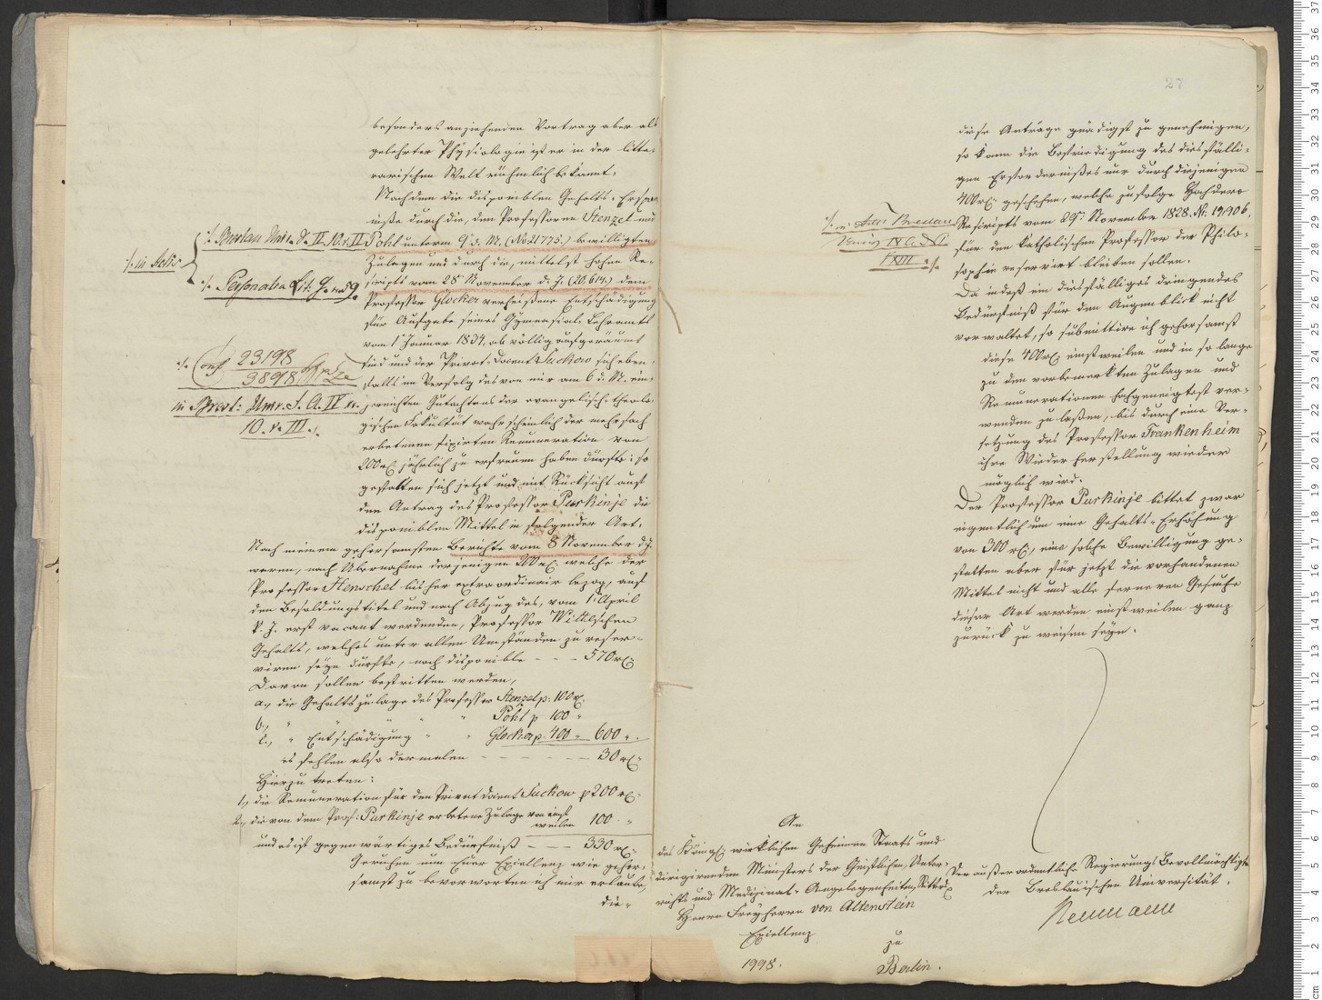 besonders anziehenden Vortrag aber als
gelehrter Physiologie ist er in der litte-
rarischen Welt rühmlich bekannt.
Nachdem die disponiblen Gehalts-Erspar-
niße durch die, den Professoren Stenzel und
Pohl unterm 9. d. M. (No 21775.) bewilligten
Zulagen und durch die, mittelst hohen Re-
scripts vom 28 November d. J. (20,614.) dem
Professor Glocker verheißene Entschädigung
für Aufgabe seines Gymnasial-Lehramts
vom 1 Januar 1834. ab völlig aufgeräumt
sind und der Privat-Docent Suckow
falls im Verfolg des von mir am 6 d. M. ein-
gereichten Gutachtens der evangelisch-theolo-
gischen Fakultät wahrscheinlich der mehrfach
erbetenen fixirten Remuneration von
200 rt jährlich zu erfreuen haben dürfte: so
gestalten sich jetzt und mit Rücksicht auf
den Antrag des Professor Purkinje die
disponiblen Mittel in folgender Art.
Nach meinem gehorsamsten Berichte vom 8 November d. J.
waren, nach Übernahme derjenigen 200 rt welche der
Professor Henschel bisher extraordinair bezog, auf
den Besoldungstitel und nach Abzug des, vom 1. April
k. J. erst vacant werdenden, Professor
Gehalts, welches unter allen Umständen zu reser-
viren seyn dürfte, noch disponible - - - 570 rt
Davon sollen bestritten werden,
a., die Gehaltszulage des Professor Stenzel p. 100 rt
b., " " " " Pohl p 100 "
c., " Entschädigung " " Glocker p. 400 " 600 ".
es fehlen also dermalen - - - - 30 rt
Hierzu treten:
1., die Remuneration für den Privatdocent Suckow p 200 rt
2., die von dem Prof: Purkinje erbetene Zulage vor einst-
weilen 100 "
und es ist gegenwärtiges Bedürfniß - - - 330 rt
Geruhen nun Euer Excellenz wie gehor-
samst zu bevorworten ich mir erlaube,
die-
./. in Actis
./. Breslau Univ. d. II. 10. v. II
./. Personalia Lit. G. no 9.
./. Conf 23198
3898
in Bresl: Univ. S. A. IV n.
10. v. III ./.
27
diese Anträge gnädigst zu genehmigen,
so kann die Befriedigung des diesfälli-
gen Erfordernißes nur durch diejenigen
400 rt geschehen, welche zufolge Hochdero
Rescripts vom 29. November 1828. N. 19,906.
für den katholischen Professor der Philo-
sophie reservirt bleiben sollen.
Da indeß ein diesfälliges dringendes
Bedürfniß für den Augenblick nicht
vorwaltet, so submittire ich gehorsamst
diese 400 rt einstweilen und in so lange
zu den vorbemerkten Zulagen und
Remunerationen hochgeneigtest ver-
wenden zu laßen, bis durch eine Ver-
setzung des Professor Frankenheim
ihre Wiederherstellung wieder
möglich wird.
Der Professor Purkinje bittet zwar
eigentlich um eine Gehalts-Erhöhung
von 300 rt, eine solche Bewilligung ge-
statten aber für jetzt die vorhandenen
Mittel nicht und alle ferneren Gesuche
dieser Art werden einstweilen ganz
zurück zu weisen seyn.
./. in Actis Breslau
Univ. IV
./.
An
des Königl. wirklichen Geheimen Staats und
dirigirenden Ministers der Geistlichen, Unter-
richts und Medizinal-Angelegenheiten, Ritter
Herrn Freyherrn von Altenstein
Excellenz
zu
1998. Berlin.
Der außerordentliche Regierungs Bevollmächtigte
der Breslauischen Universität.
Neumann